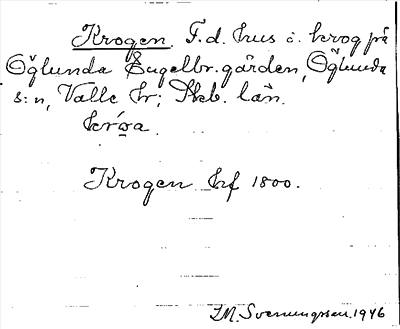 Krogen. F.d. hus o. krog på
Öglunda Engelbr. gården, Öglunda
s:n, Valle hr; Skb. län.
Krogen hf 1800.
I.M. Svenungsson. 1946